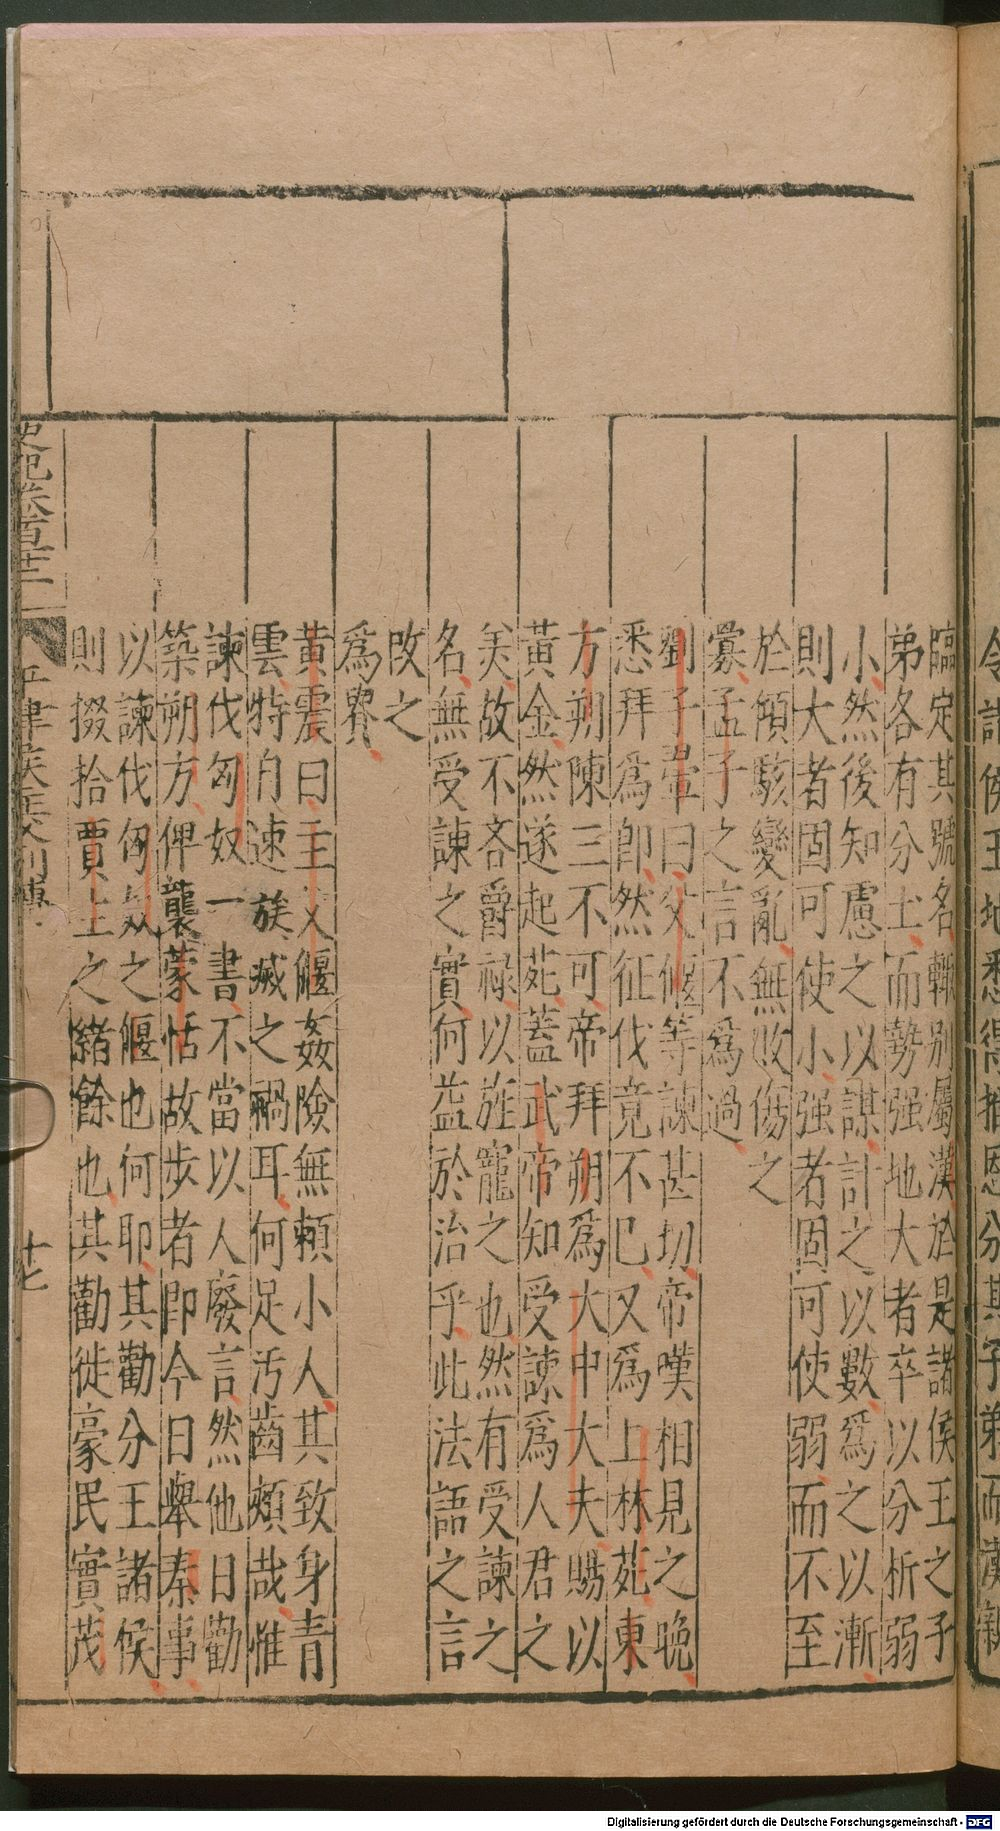 今諸侯王地悉得推恩分其子弟而漢親
臨定其號名輙别屬漢於是諸侯王之子
弟各有分土而勢强地大者卒以分析弱
小然後知慮之以謀計之以數爲之以漸
則大者固可使小强者固可使弱而不至
於傾駭變亂無敗傷之
寡孟子之言不爲過
劉子翬曰父偃等諫甚切帝嘆相見之晚
悉拜爲郎然征伐竟不已又爲上林苑東
方朔陳三不可帝拜朔爲大中大夫賜以
黃金然遂起苑蓋武帝知受諫爲人君之
美故不吝爵禄以旌寵之也然有受諫之
名無受諫之實何益於治乎此法語之言
改之
爲貴
黃震曰主父偃姦險無賴小人其致身青
雲特自速族滅之禍耳何足汚齒頰哉惟
諫伐匈奴一書不當以人廢言然他日勸
築朔方俾襲蒙恬故步者即今日舉秦事
以諫伐匈奴之偃也何耶其勸分王諸侯
則掇拾賈生之緒餘也其勸徙豪民實茂
史記卷百十二
平津侯主父列傳
十七
Digitalisierung gefördert durch die Deutsche Forschungsgemeinschaft - DFG